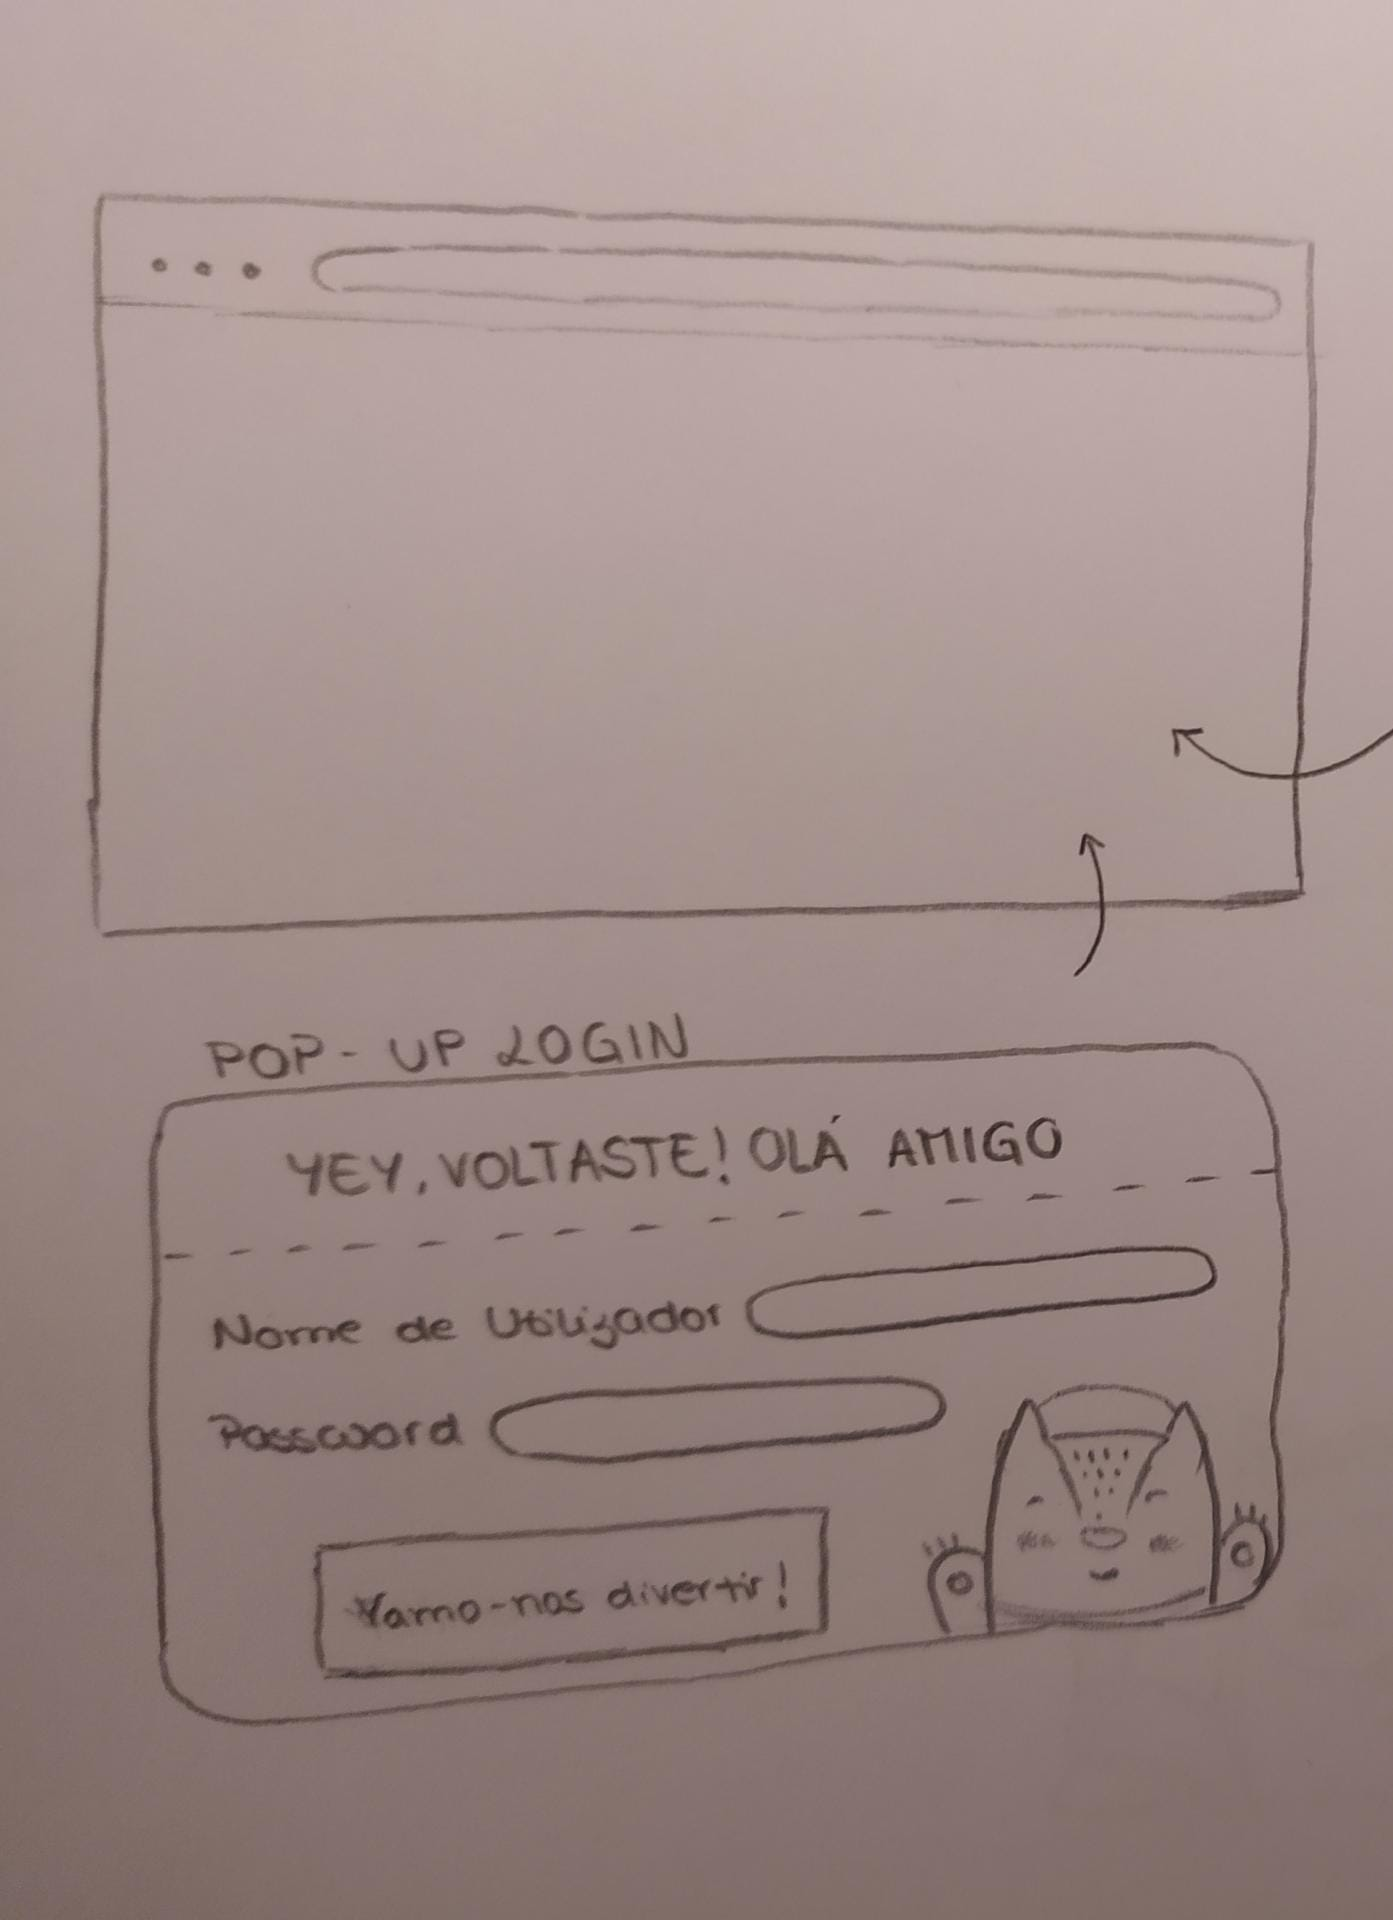 POP-UP LOGIN
YEY, VOLTASTE! OLÁ AMIGO
Nome de Utilizador
Password
Vamo-nos divertir!